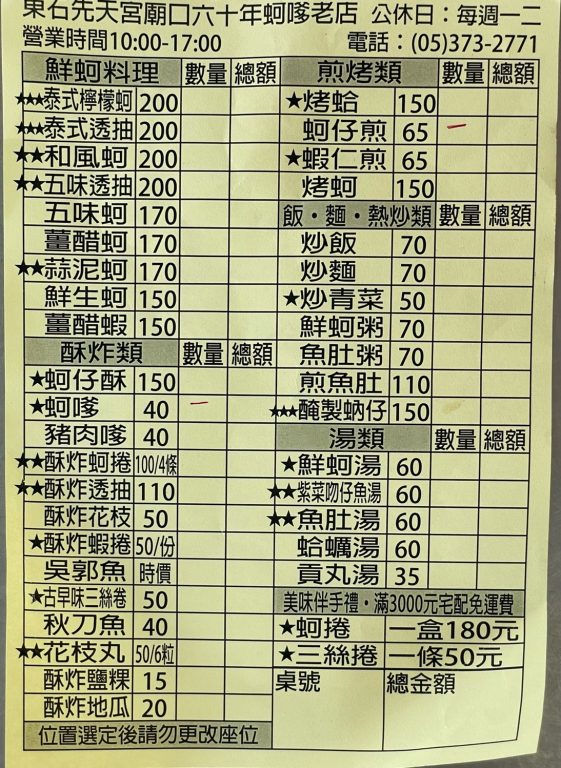 東石先天宮廟口六十年蚵嗲老店 公休日：每週一二
營業時間10:00-17:00 電話：(05)373-2771
鮮蚵料理 數量 總額
★★★泰式檸檬蚵 200
★★★泰式透抽 200
★★和風蚵 200
★★五味透抽 200
五味蚵 170
薑醋蚵 170
★★蒜泥蚵 170
鮮生蚵 150
薑醋蝦 150
酥炸類 數量 總額
★蚵仔酥 150
★蚵嗲 40 一
豬肉嗲 40
★★酥炸蚵捲 100/4條
★★酥炸透抽 110
酥炸花枝 50
★酥炸蝦捲 50/份
吳郭魚 時價
★古早味三絲卷 50
秋刀魚 40
★★花枝丸 50/6粒
酥炸鹽粿 15
酥炸地瓜 20
位置選定後請勿更改座位
煎烤類 數量 總額
★烤蛤 150
蚵仔煎 65 一
★蝦仁煎 65
烤蚵 150
飯・麵・熱炒類 數量 總額
炒飯 70
炒麵 70
★炒青菜 50
鮮蚵粥 70
魚肚粥 70
煎魚肚 110
★★★醃製蚋仔 150
湯類 數量 總額
★鮮蚵湯 60
★★紫菜吻仔魚湯 60
★★魚肚湯 60
蛤蠣湯 60
貢丸湯 35
美味伴手禮・滿3000元宅配免運費
★蚵捲 一盒180元
★三絲捲 一條50元
桌號 總金額